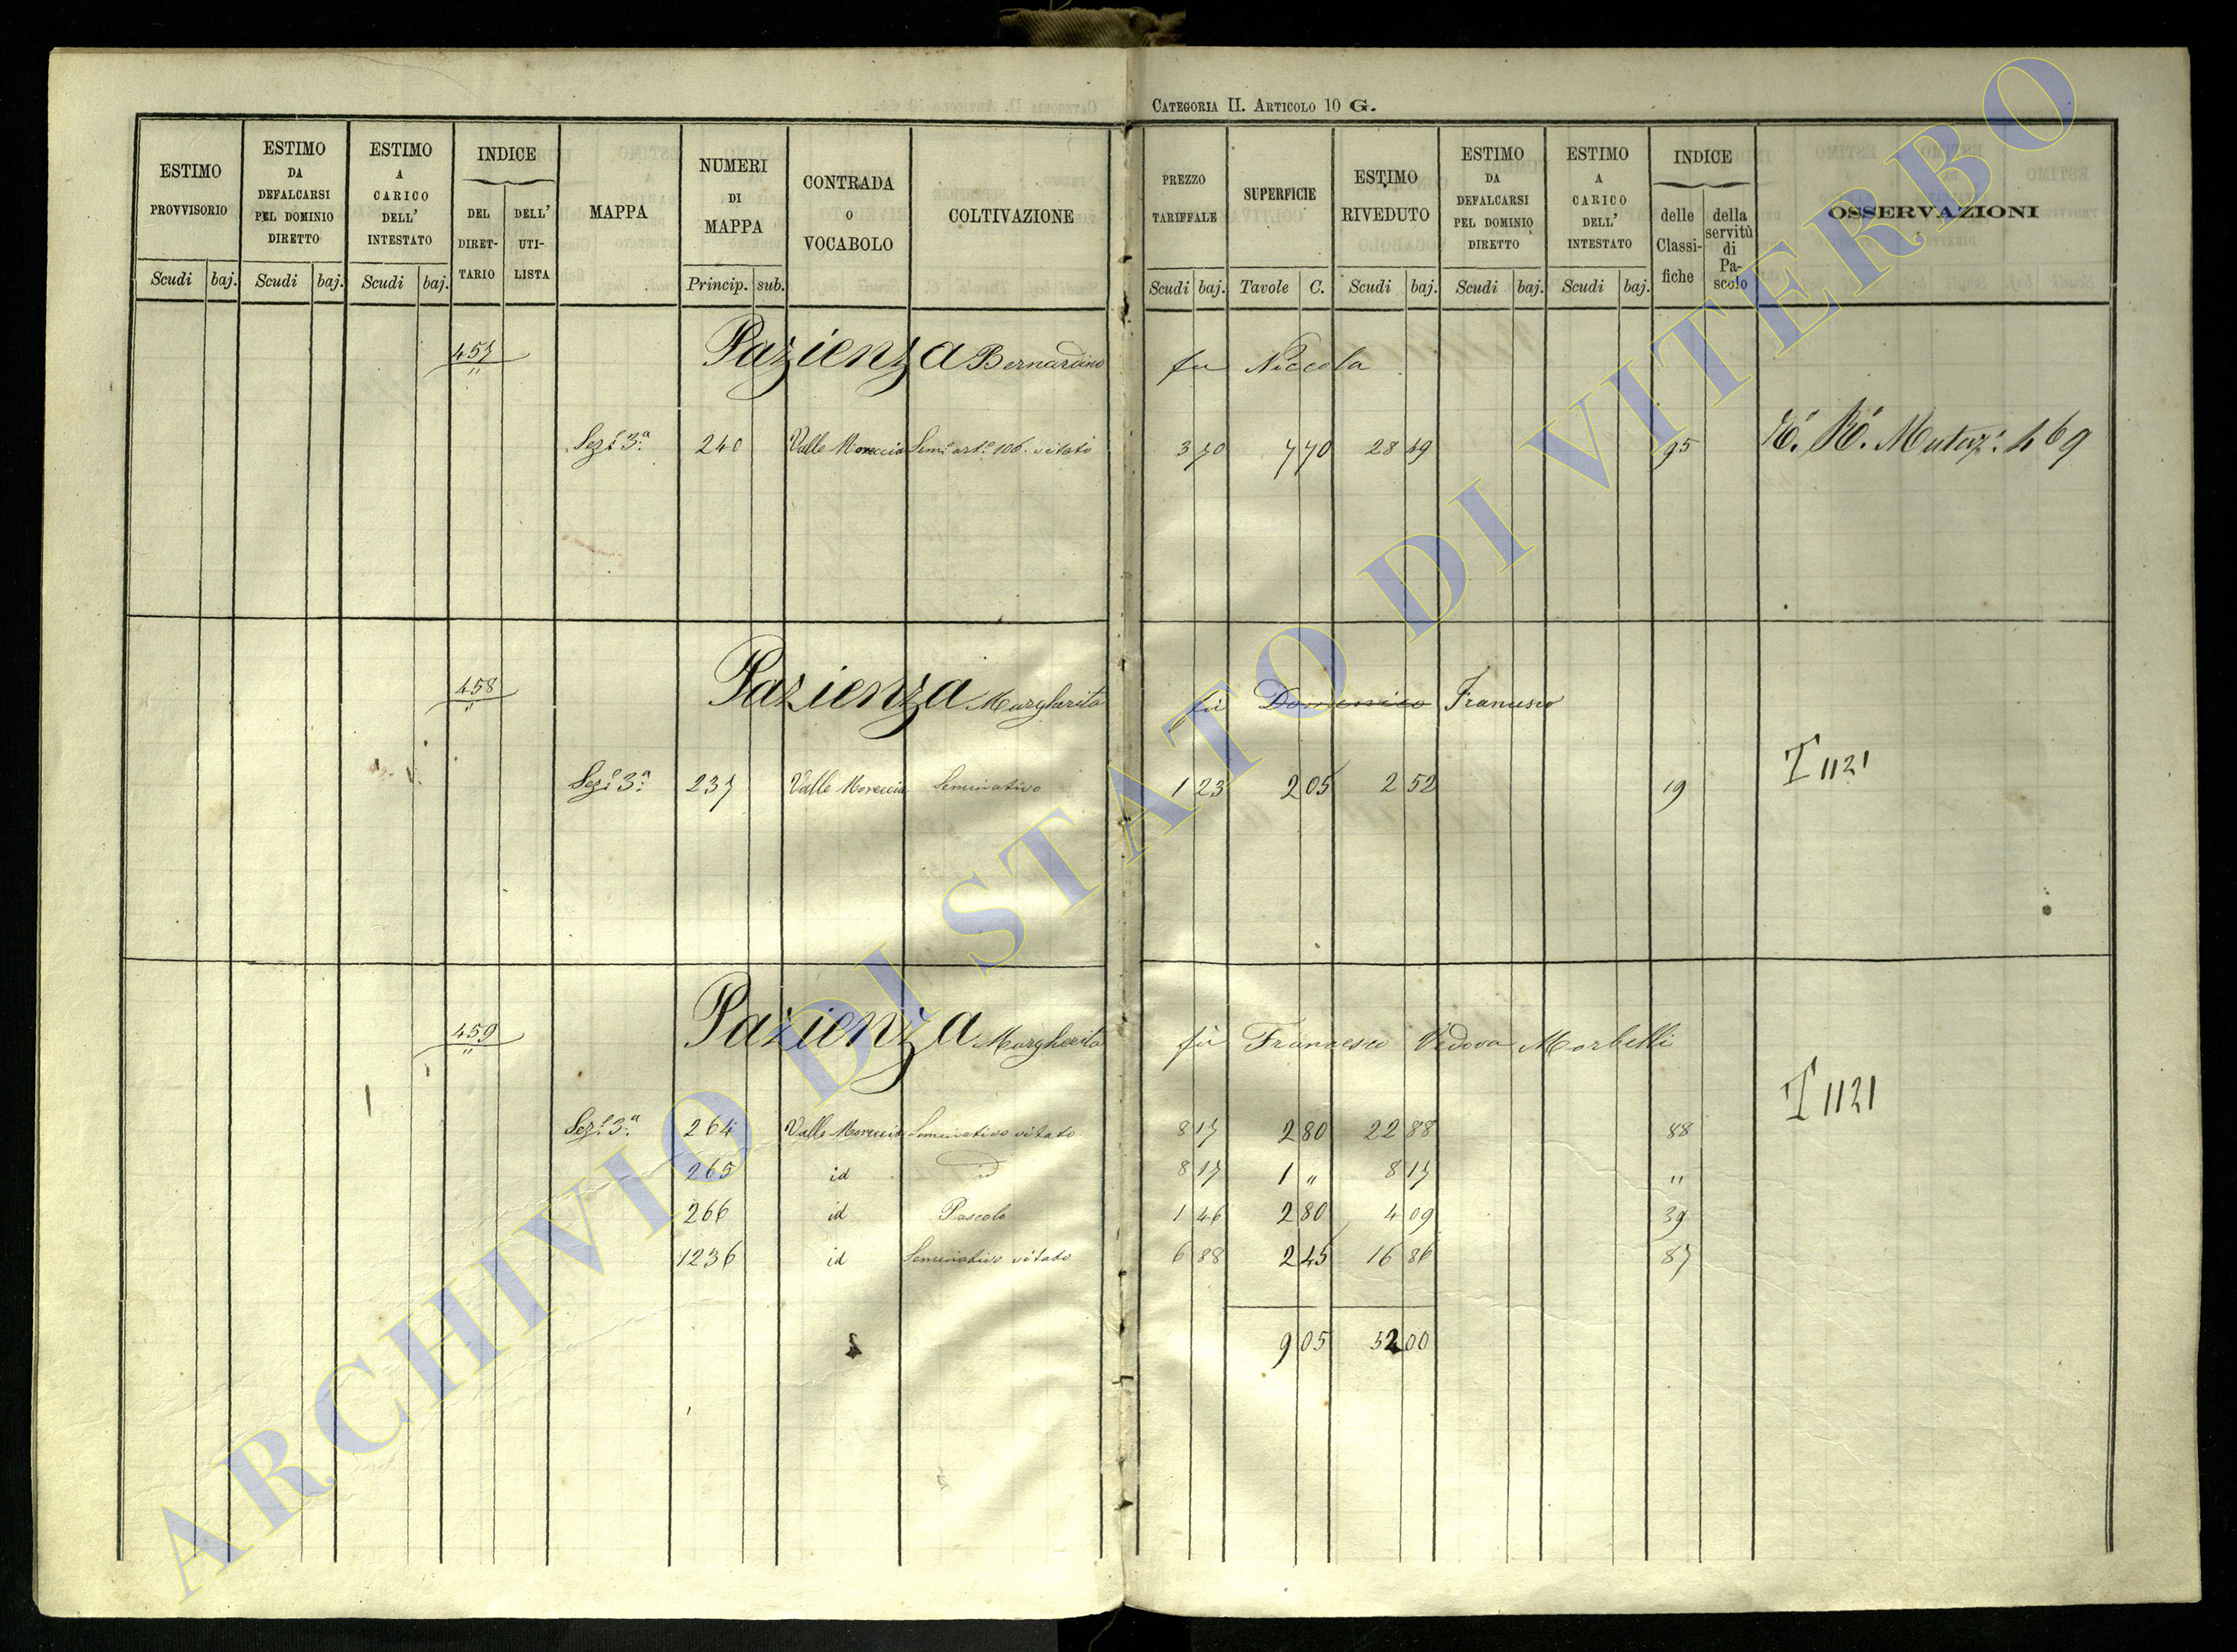 CATEGORIA II. ARTICOLO 10 G.
ESTIMO PROVVISORIO
Scudi baj.
ESTIMO DA DEFALCARSI PEL DOMINIO DIRETTO
Scudi baj.
ESTIMO A CARICO DELL' INTESTATO
Scudi baj.
INDICE
DEL DIRET-
TARIO
DELL' UTI-
LISTA
MAPPA
NUMERI DI MAPPA
Princip. sub.
CONTRADA O VOCABOLO
COLTIVAZIONE
PREZZO TARIFFALE
Scudi baj.
SUPERFICIE
Tavole C.
ESTIMO RIVEDUTO
Scudi baj.
ESTIMO DA DEFALCARSI PEL DOMINIO DIRETTO
Scudi baj.
ESTIMO A CARICO DELL' INTESTATO
Scudi baj.
INDICE
delle Classi-
fiche
della servitù di Pa-
scolo
OSSERVAZIONI
457 Pazienza Bernardino fu Niccola
Sez. 3.a 240 Valle Moreccia Sem.o art.o 106. vitato 3 70 7 70 28 49 95
469
458 Pazienza Margharita fù Domenico Francesco
Sez. 3.a 237 Valle Moreccia Seminativo 1 23 2 05 2 52 19
T 1121
459 Pazienza Margherita fù Francesco Vedova Morbelli
T 1121
Sez. 3.a 264 Valle Moreccia Seminativo vitato 8 17 2 80 22 88 88
265 id id 8 17 1 " 8 17 "
266 id Pascolo 1 46 2 80 4 09 39
1236 id Seminativo vitato 6 88 2 45 16 86 87
9 05 52 00
ARCHIVIO DI STATO DI VITERBO